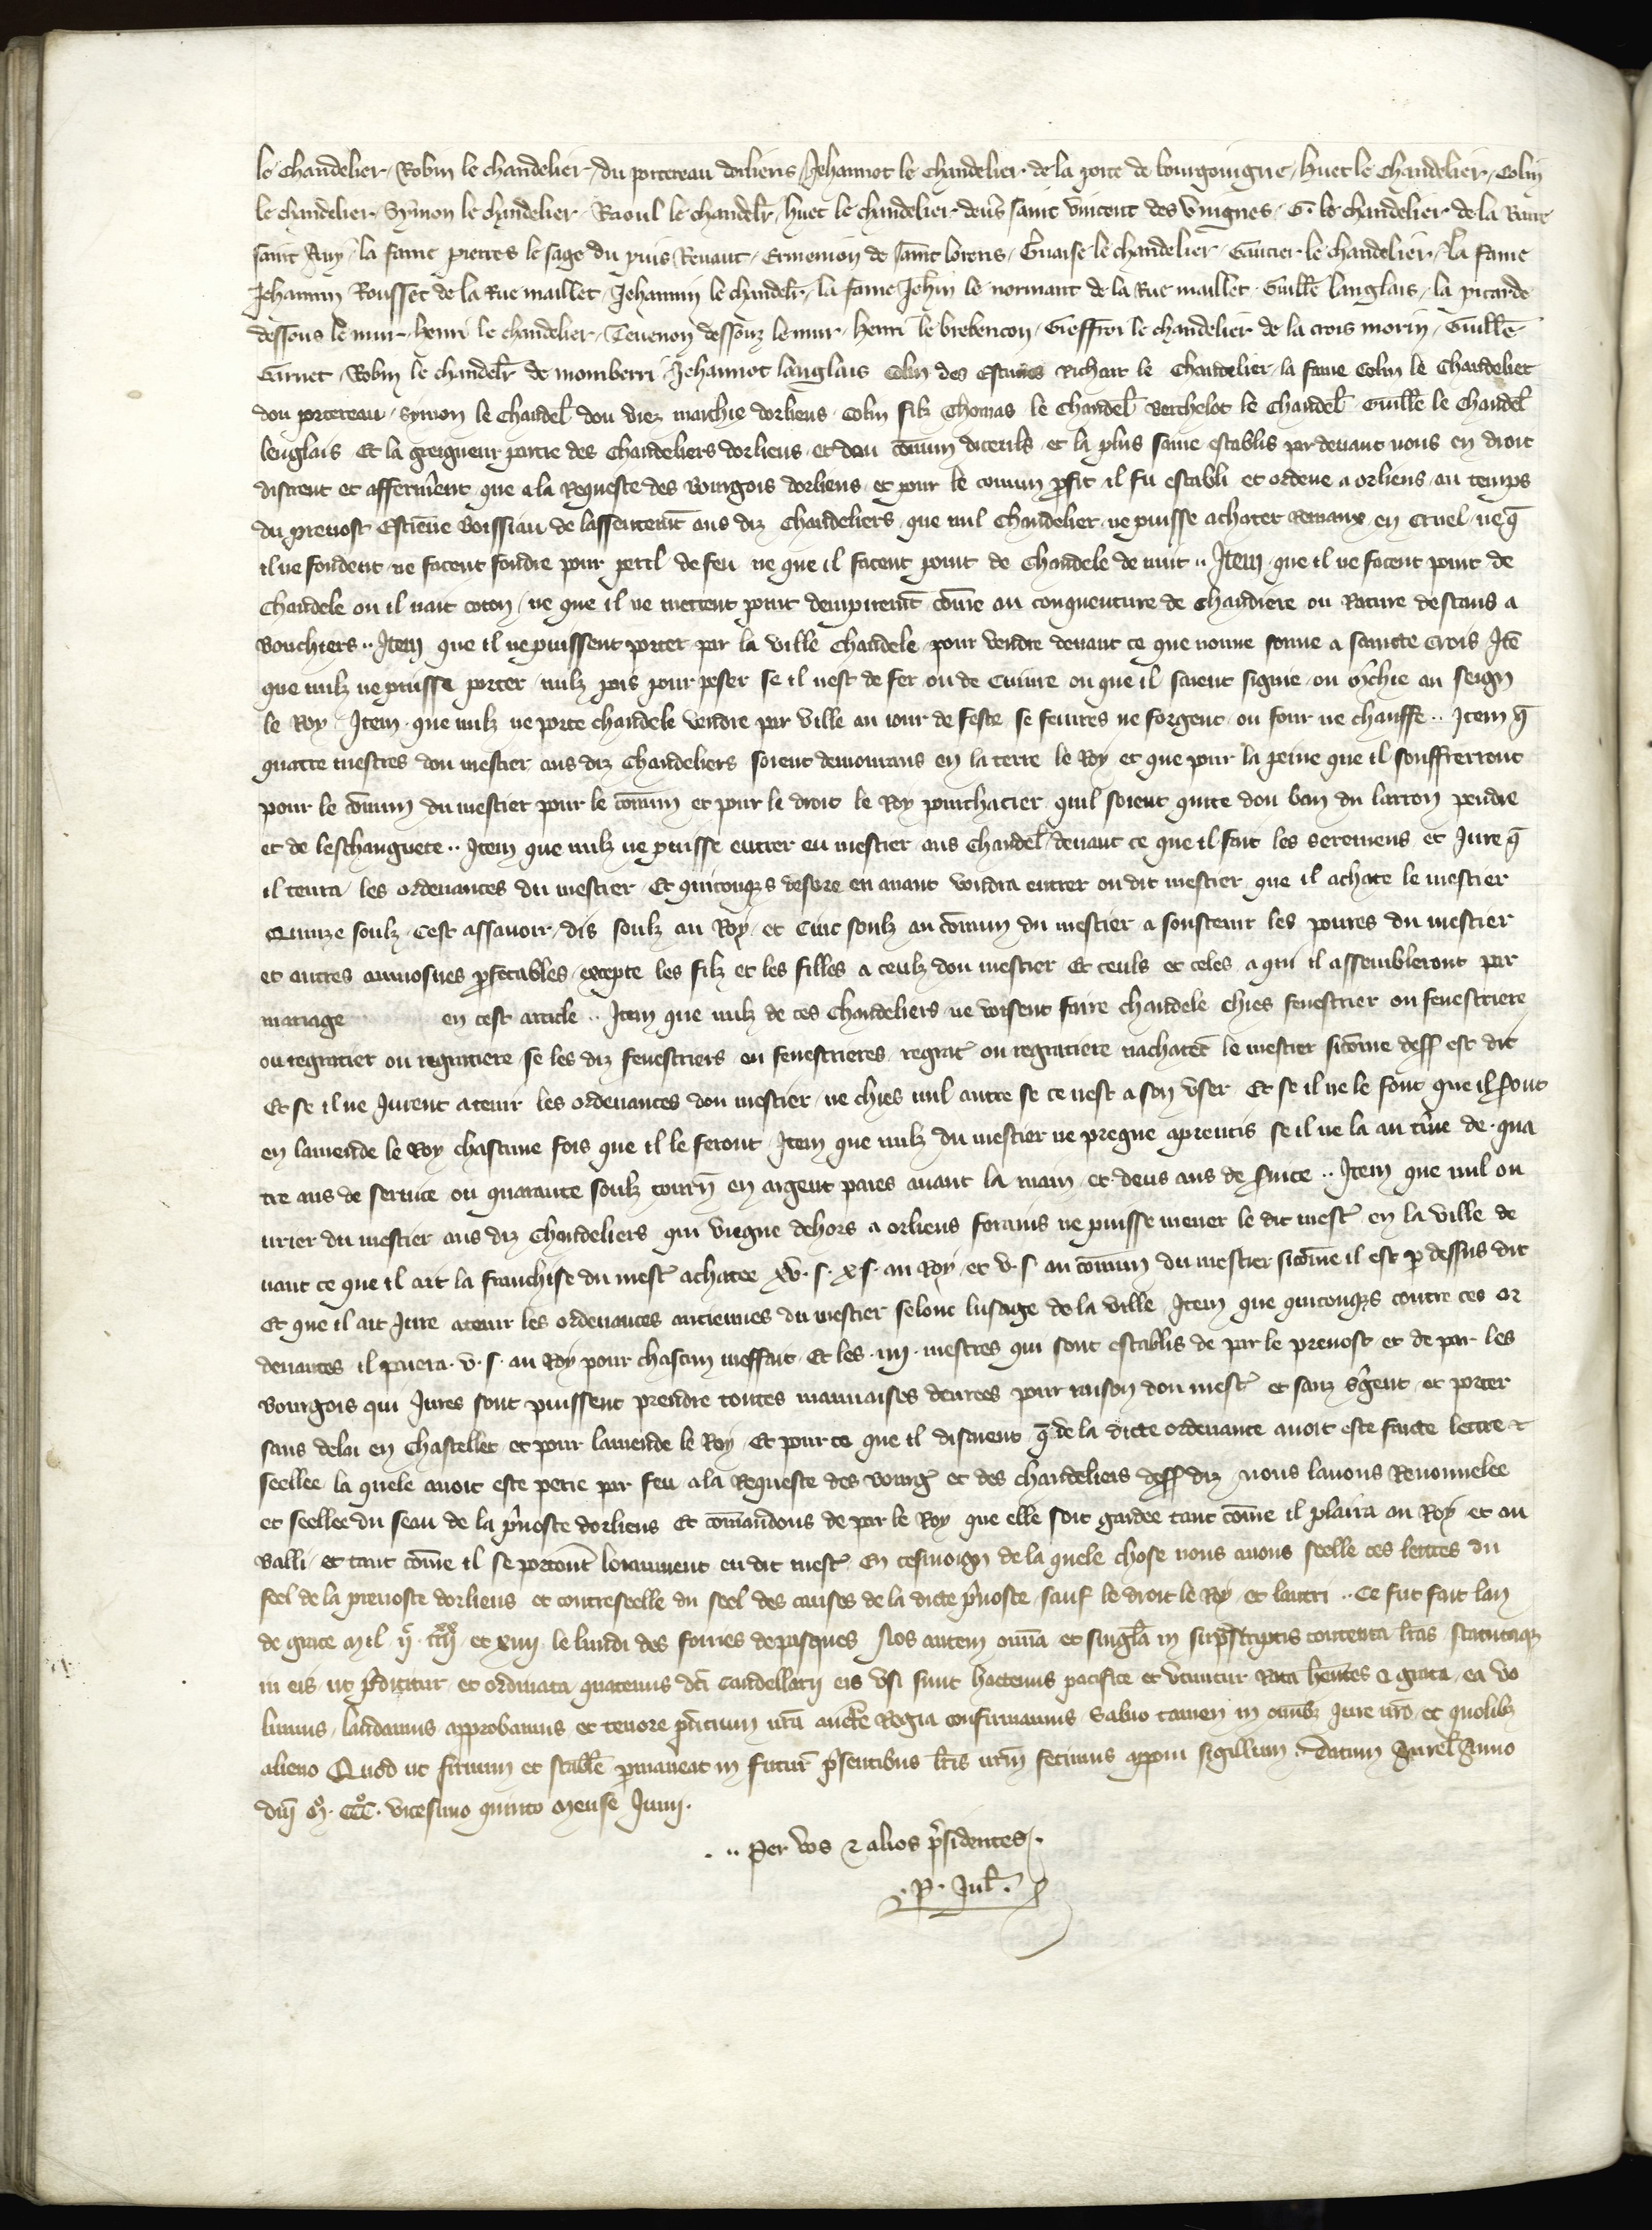 le chandelier / Robin le chandelier / du portereau dorliens / Jehannot le chandelier de la porte de bourgoingne / Huet le chandelier / Colin
le chandelier / Symon le chandelier / Raoul le chandelr̄ / huet le chandelier deus̄ saint vincent des vingnes / G. le chandelier de la Rue
saint Auy / la fame pierres le sage du puis Renaut / Ermenion de saint lorens / Gruaise le chandelier / Gautier le chandelier / la fame
Jehannin Rousset de la Rue maillet / Jehannin le chandelr̄ / la fame Jehin̄ le normant de la Rue maillet Guillē langlais / la picarde
dessous le mur / henri le chandelier / Teuenon dessouz le mur / henri le brebencon / Gieffroi le chandelier de la crois morin / Guillē
Garnet / Robin le chandelr̄ de momberri Jehannot langlais Colin des estuues Richart le Chandelier / la fame Colin le Chandelier
dou portereau / Symon le Chandel̄ dou viez marchie dorliens Colin filz Thomas le Chandel̄ Berthelot le Chandel̄ Guillē le Chandel̄
lenglais Et la greigneur partie des Chandeliers dorliens et dou cōmun diceuls et la plus saine establis par deuant nous en droit
distrent et affermēent que a la Requeste des Bourgois dorliens et pour le cōmun ꝓfit il fu establi et ordene a orliens au temps
du preuost Estiēne Boissiau de lassentemēt aus diz Chandeliers que nul Chandelier ne puisse achater Remanx en cruel / ne q̄
il ne fondent ne facent fondre pour peril de feu ne que il facent point de Chandele de nuit .. Item que il ne facent point de
Chandele ou il nait coton / ne que il ne mettent point dempiremēt cōme au conquenture de chaudiere ou Rature destaus a
Bouchiers .. Item que il ne puissent porter par la ville Chandele pour vendre deuant ce que nonne sonne a saincte Crois Itē
que nulz ne puisse porter nulz pois pour peser se il nest de fer ou de Cuiure ou que il saient signie ou .. au seign
le Roy Item que nulz ne porte chandele vendre par ville au iour de feste se feures ne forgent ou four ne chauffe .. Item q̄
quatre mestres dou mestier aus diz Chandeliers soient demourans en la terre le Roy et que pour la peine que il souffrerront
pour le cōmun du mestier pour le cōmun et pour le droit le Roy pourchacier quil soient quite dou ban du larron pendre
et de leschauguete .. Item que nulz ne puisse entrer eu mestier aus chandel̄ deuant ce que il fait les seremens et Jure q̄
il tenra les ordenances du mestier Et quiconqs desore en auant voudra entrer ou dit mestier que il achate le mestier
Quinze soulz Cest assauoir dis soulz au Roy et Cinc soulz au cōmun du mestier a soustenir les poures du mestier
et autres aumosnes ꝓfetables excepte les filz et les filles a ceulz dou mestier Et ceuls et celes a qui il assembleront par
mariage en cest article .. Item que nulz de ces Chandeliers ne voisent faire chandele chies fenestrier ou fenestriere
ou regratier ou regratiere se les diz fenestriers ou fenestrieres regrat̄ ou regratiere nachatēt le mestier sicōme dess̄ est dit
Et se il ne Jurent a tenir les ordenances dou mestier / ne chies nul autre se ce nest a son vser Et se il ne le font que il sont
en lamende le Roy chascune fois que il le feront Item que nulz du mestier ne pregne aprentis se il ne la au t̄me de qua
tre ans de seruice ou quarante soulz tourn̄ en argent paies auant la main et deus ans de s̄uice .. Item que nul ou
urier du mestier aus diz Chandeliers qui viegne dehors a orliens forains ne puisse mener le dit mest̄ en la ville de
uant ce que il ait la franchise du mest̄ achatee xv. s. x s. au Roy et v. s au cōmun du mestier sicōme il est ꝑ dessus dit
Et que il ait Jure atenir les ordenances anciennes du mestier selonc lusage de la ville Item que quiconqs contre ces or
denances il paiera v. s. au Roy pour chascun meffait Et les iiij mestres qui sont establis de par le preuost et de par les
Bourgois qui Jures sont puissent prendre toutes mauuaises denrees pour raison dou mest̄ et sanz sgent et porter
sans delai en Chastellet et pour lamende le Roy Et pour ce que il disoient q̄ de la dicte ordenance auoit este faicte lettre ⁊
seellee la quele auoit este perie par feu a la Requeste des bourḡ et des chandeliers dess̄ diz nous lauons Renouuelee
et seellee du seau de la p̄uoste dorliens Et cōmandons de par le Roy que elle soit gardee tant cōme il plaira au Roy et au
Balli / et tant cōme il se portont̄ loiaument eu dit mest̄ En tesmoign de la quele chose nous auons seelle ces lettres du
seel de la preuoste dorliens et contreseelle du seel des causes de la dicte p̄uoste sauf le droit le Roy et lautri .. Ce fut fait lan
de grace Mil ijͨ iiijˣˣ et xiiij le lundi des foiries de pasques Nos autem omīa et singlā in sup̄scriptis contenta lr̄as statutaqꝫ
in eis ut p̄dicitur et ordinata quatenus dc̄i Candellarij eis vsi sunt hactenus pacifice et vtuntur Rata hentēs ⁊ grata / ea vo
lumus / laudamus approbamus et tenore p̄sentium nrā auctt̄e Regia confirmamus Saluo tamen in omībꝫ iure nrō et quolibꝫ
alieno Quod ut firmum et stabilē ꝑmaneat in futur̄ p̄sentibus lr̄is nrm̄ fecimus apponi sigillum. Datum Aurel̄ Anno
dnī Mͦ. CCCͦ. vicesimo quinto Mense Junij.
.. Per vos ⁊ alios p̄sidentes.
P. Jul̄.